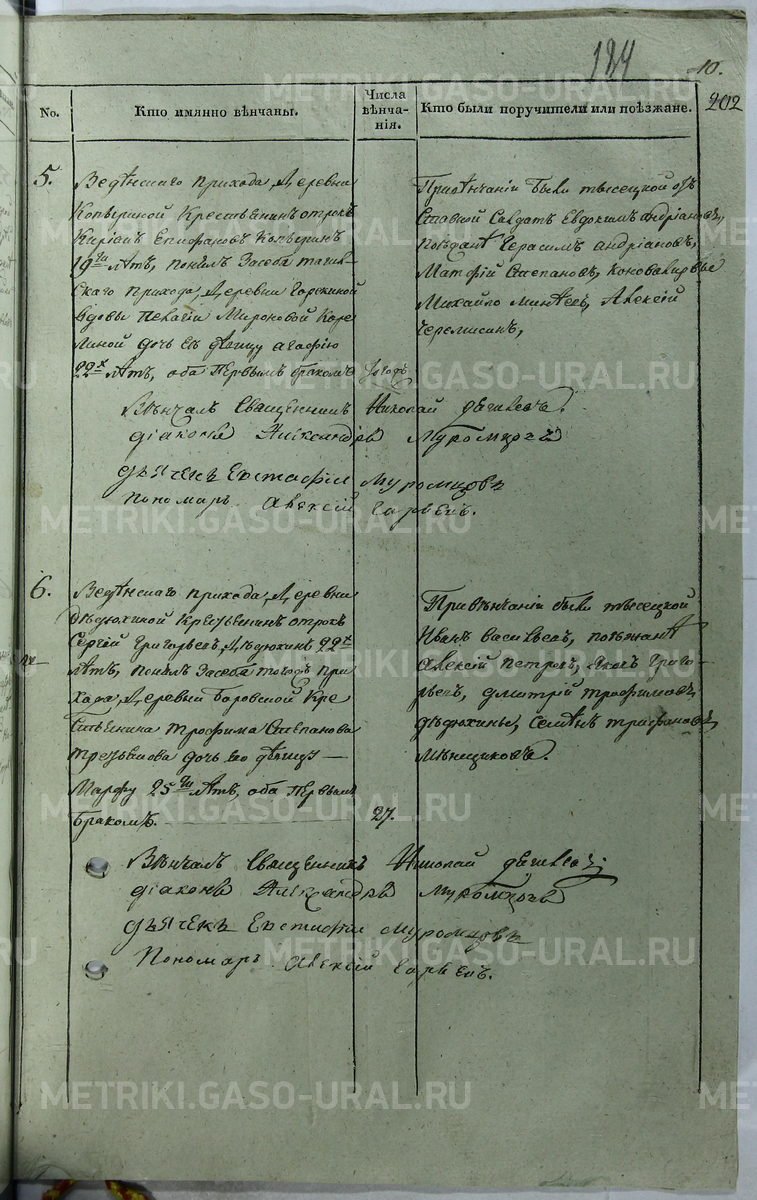 194 10.
No. Кто имянно вѣнчаны. Числа вѣнчанія. Кто были поручители или поѣзжане. 202
5. Веденскаго прихода, Деревни
Копыриной Крестьянинъ отрокъ
Епифановъ Копыринъ
19ти лѣтъ, понялъ засебя тагиль-
скаго прихода, Деревни
вдовы Пелагіи Мироновой Коре
линой дочь ея дѣвицу агафію
22х лѣтъ, оба первымъ бракомъ
Привѣнчаніи были тысецкой от
ставной Салдатъ Евдокимъ андріановъ,
поѣзжанѣ Герасимъ андріановъ,
Матфій Степановъ,
Михайло Алексій
Черемисинъ,
Вѣнчалъ Священникъ Николай
діаконъ Александръ Муромцовъ
дьячекъ Евстафій Муромцовъ
Пономарь Алексій
6. Веденскаго прихода, Деревни
дѣдюхиной Крестьянинъ отрокъ
Сергій Григорьевъ, Дѣдюхинъ 22х
лѣтъ, понялъ засебя тогожъ при
хода, Деревни Боровской Кре
стьянина трофима Степанова
третьякова дочь его дѣвицу —
Марфу 25ти лѣтъ, оба первымъ
бракомъ. 27.
Привѣнчаніи были тысецкой
Иванъ васильевъ, поѣзжанѣ
Алексій петровъ, Яковъ григо-
рьевъ, дмитрій трофимовъ,
дѣдюхины, Семенъ трифановъ,
мѣнщиковъ.
Вѣнчалъ Священникъ Николай
діаконъ Александръ Муромцовъ
дьячекъ Евстафій Муромцовъ
Пономарь Алексій
METRIKI.GASO-URAL.RU